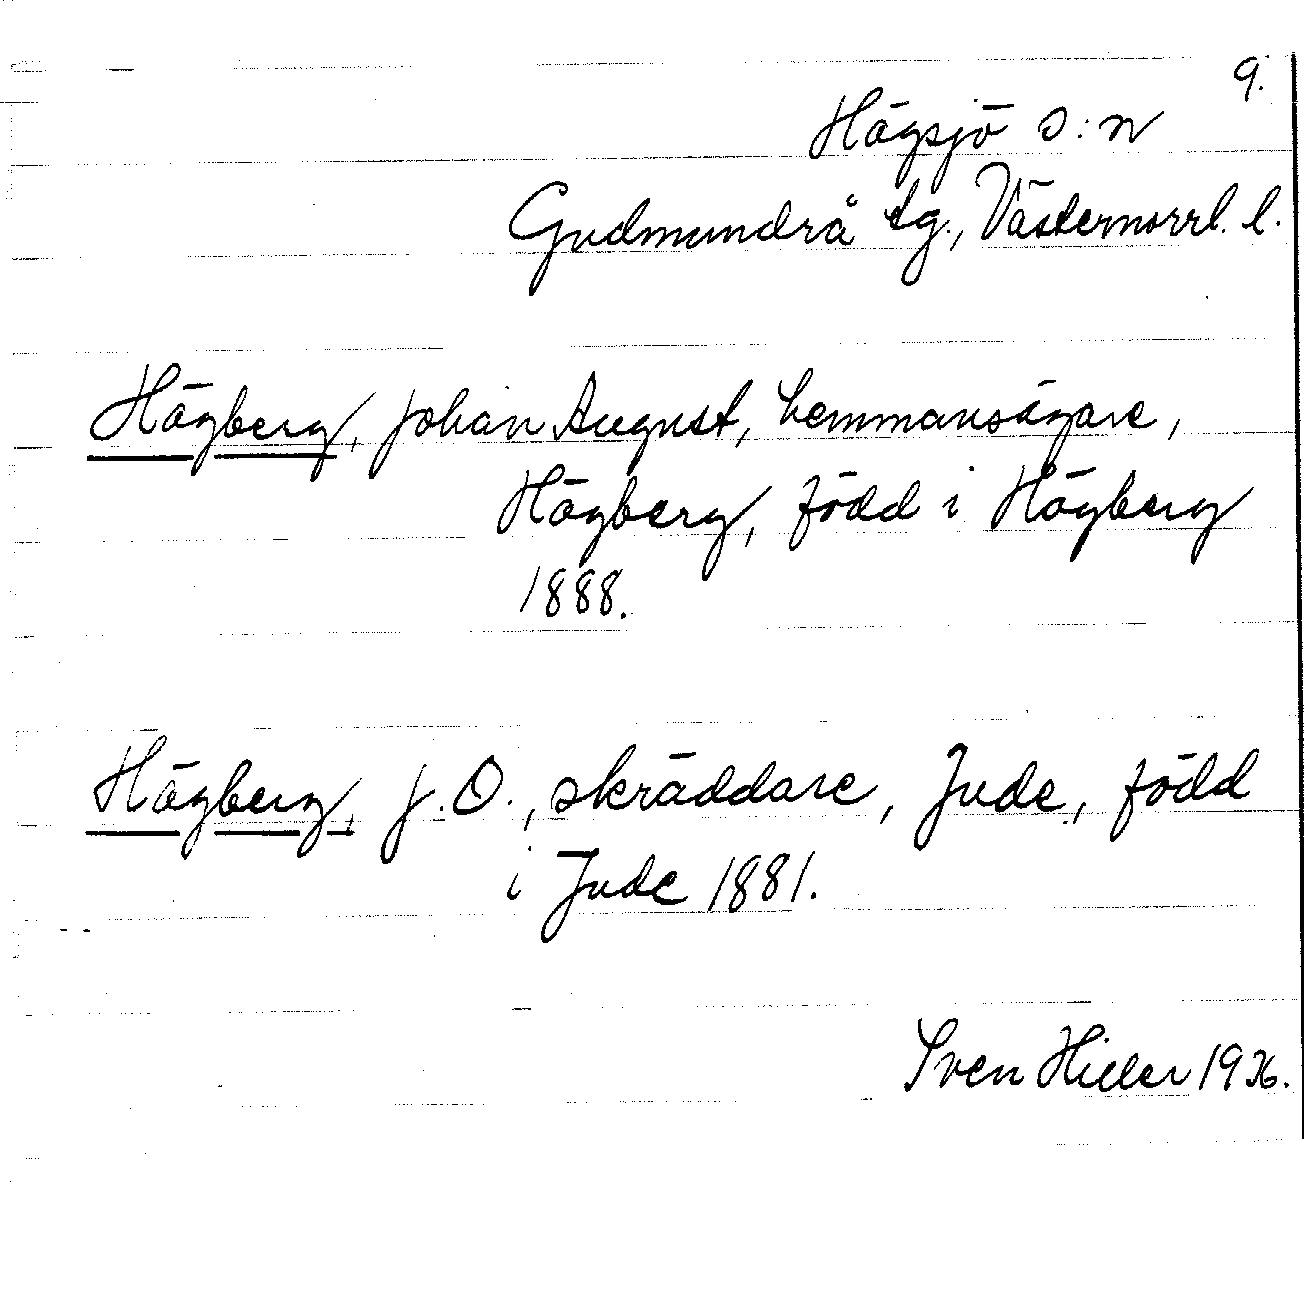 9.
Högsjö s:n
Gudmundrå tg., Västernorrl. l.
Högberg, Johan August, hemmansägare,
Högberg, född i Högberg
1888.
Högberg, J. O., skräddare, Jude, född
i Jude 1881.
Sven Hiller 1936.